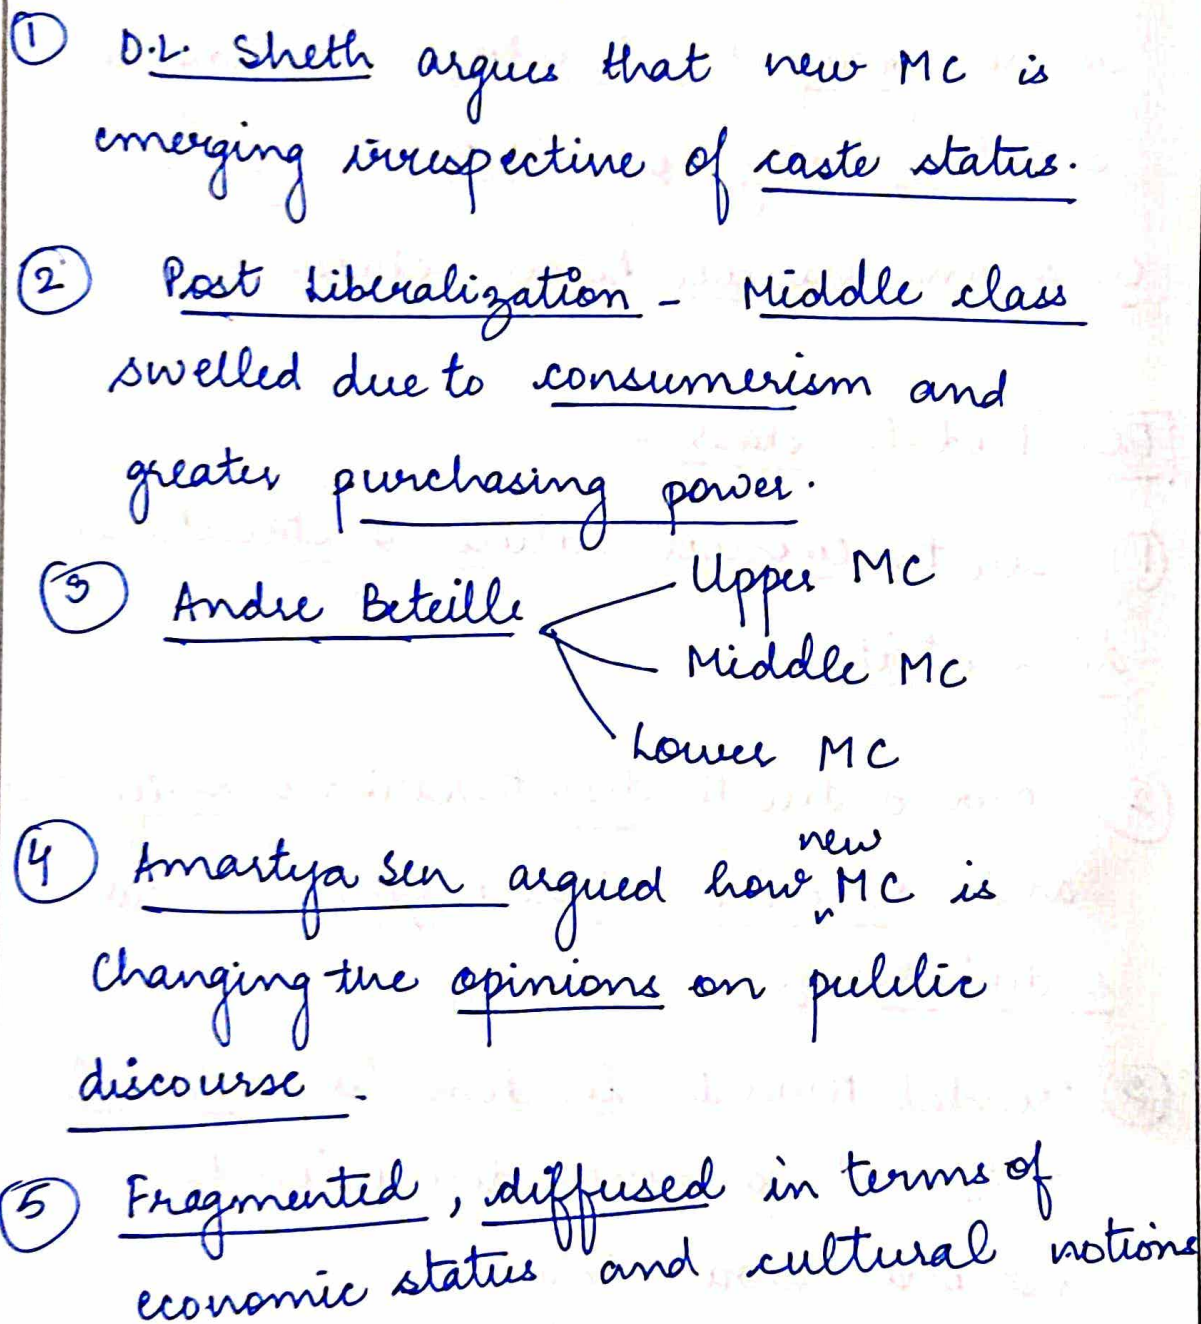 ① D.L. Sheth argues that new MC is
emerging irrespective of caste status.
② Post Liberalization - Middle class
swelled due to consumerism and
greater purchasing power.
③ Andre Beteille
Upper MC
Middle MC
Lower MC
④ Amartya Sen argued how new MC is
changing the opinions on public
discourse.
⑤ Fragmented, diffused in terms of
economic status and cultural notions